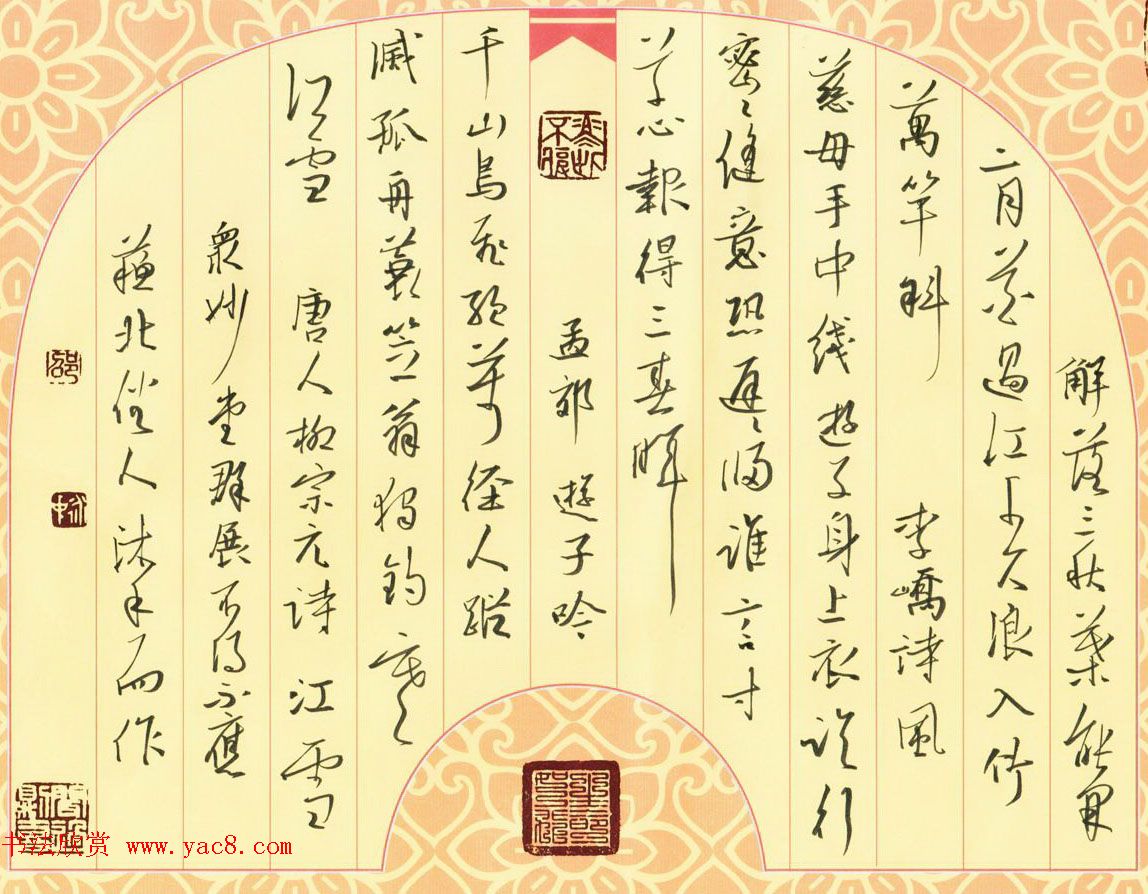 解落三秋葉能開
二月花過江千尺浪入竹
萬竿斜 李嶠詩風
慈母手中线遊子身上衣临行
密〻縫意恐遲〻歸誰言寸
草心報得三春暉
孟郊 遊子吟
千山鳥飛絕萬徑人蹤
滅孤舟蓑笠翁獨釣寒
江雪 唐人柳宗元詩 江雪
衆妙堂群展不得不應
蘇北俗人沐手而作
书法欣赏 www.yac8.com